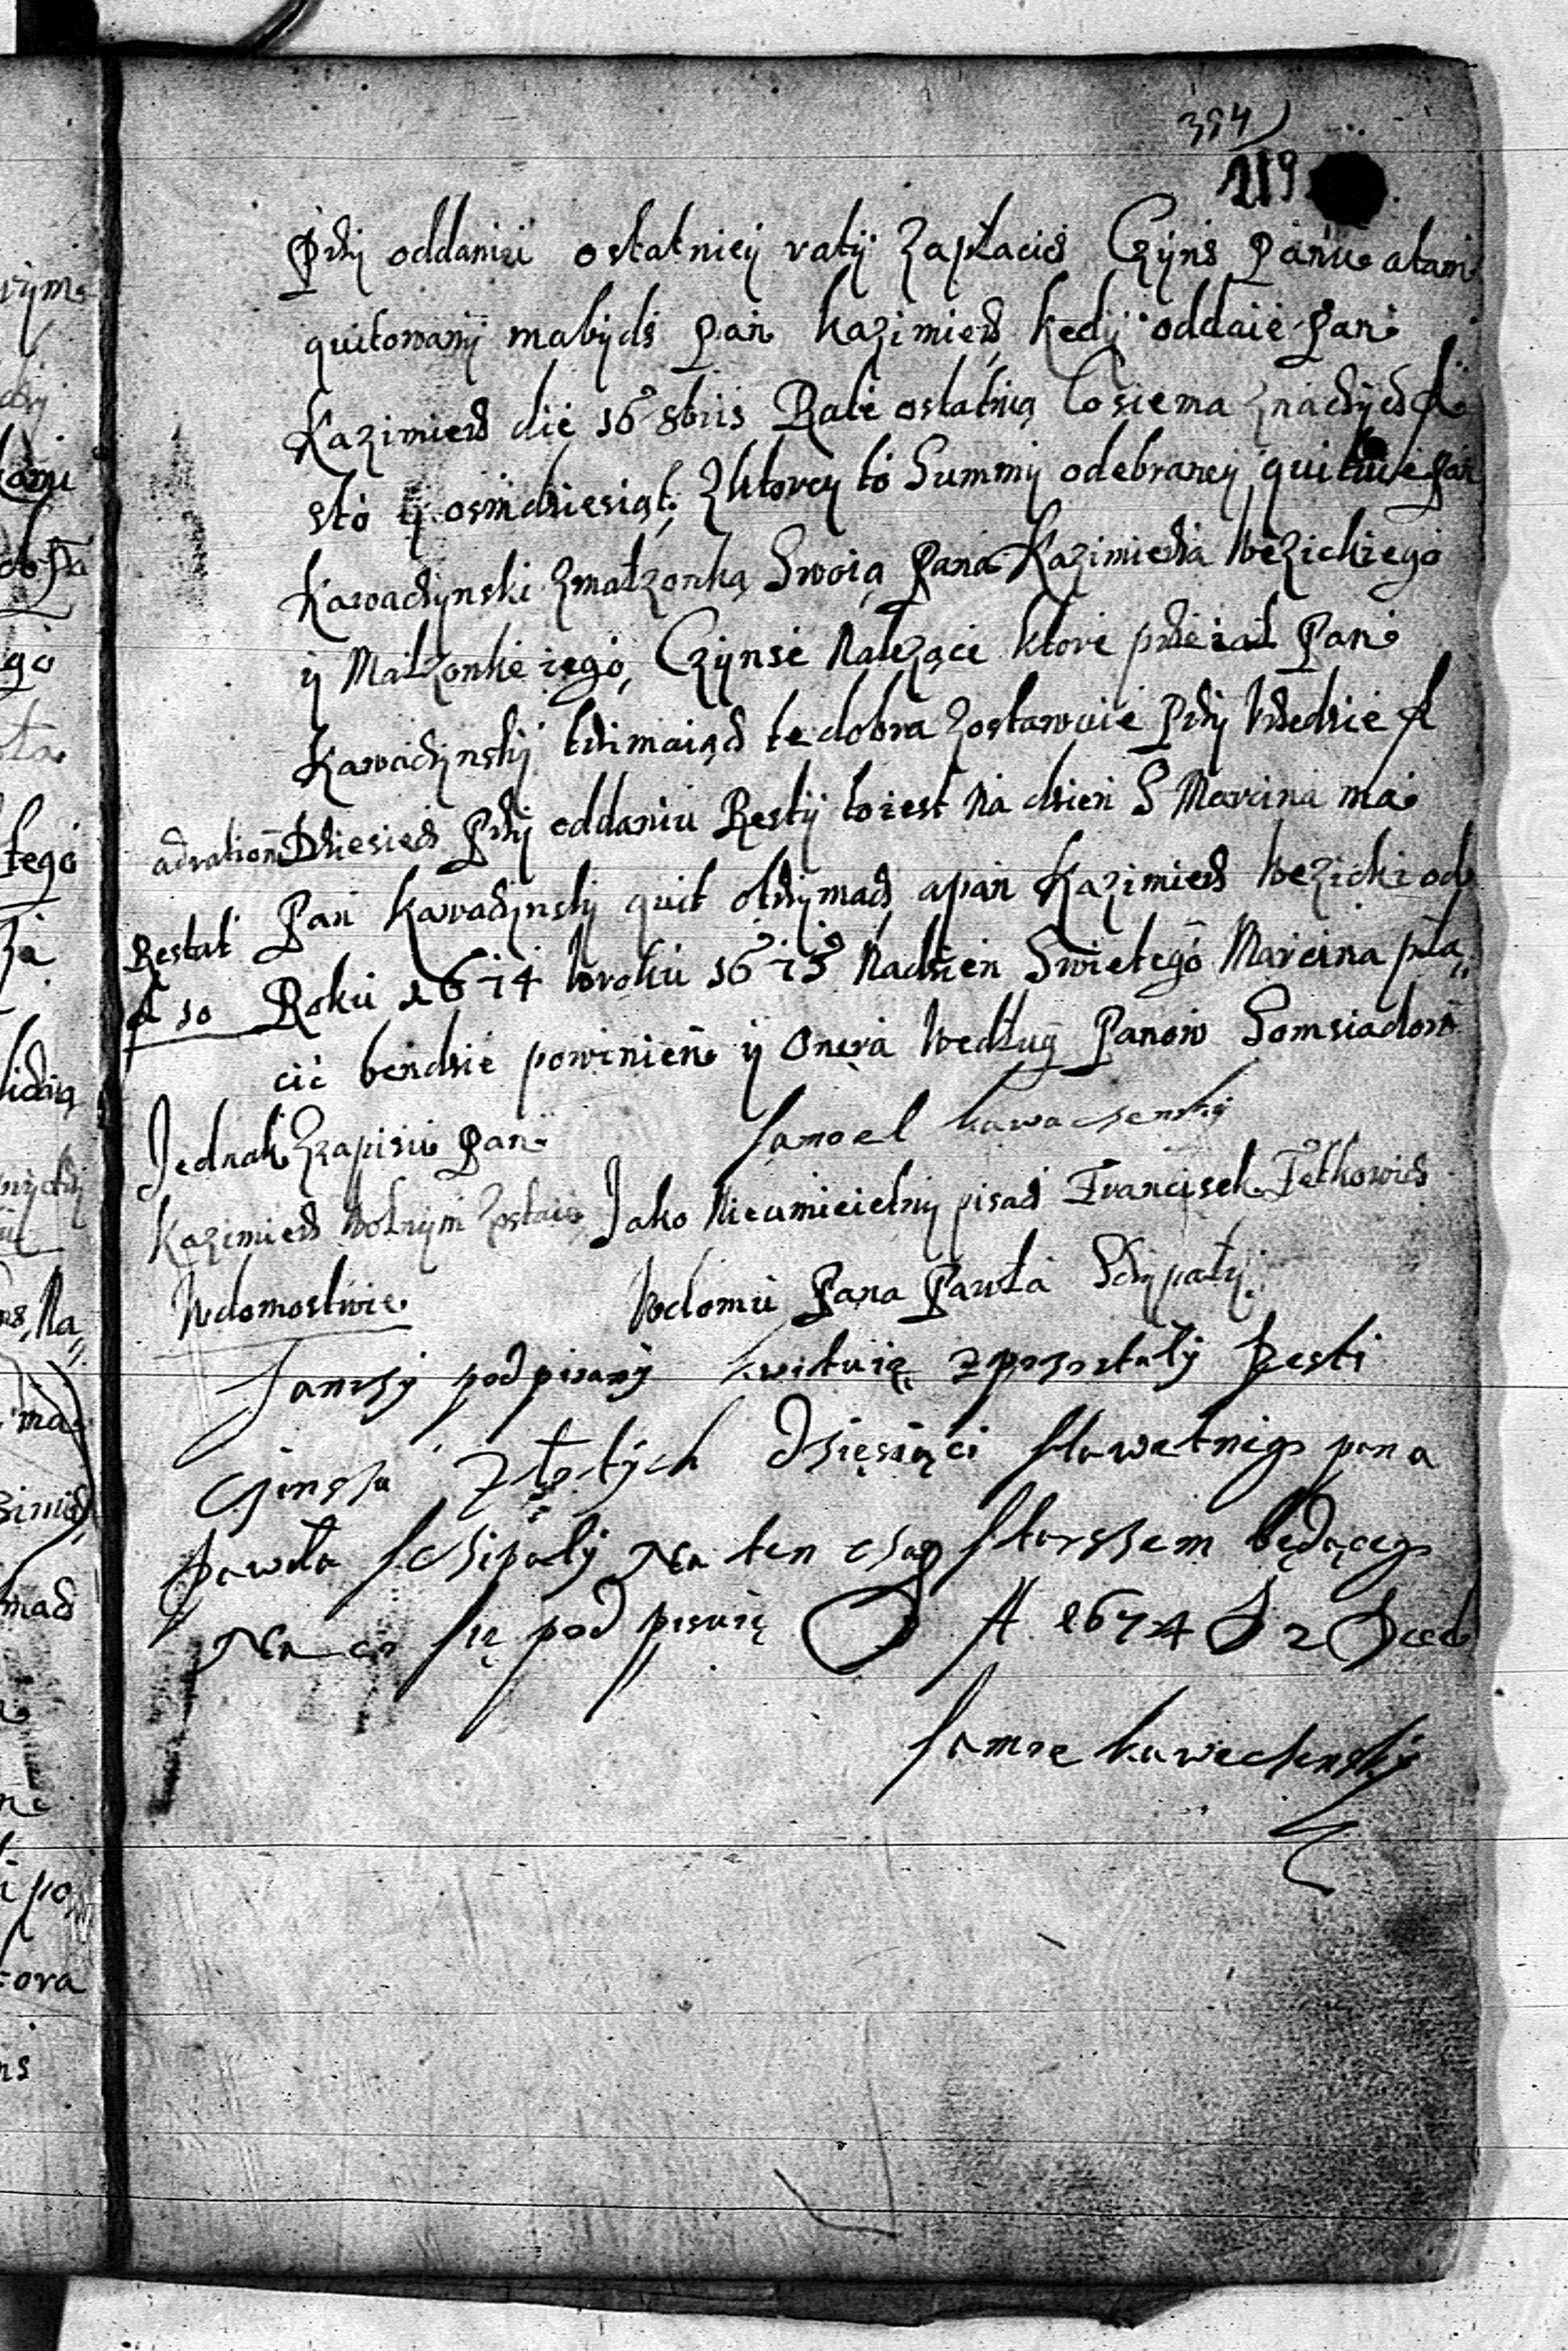 394)
219
Przy oddaniu ostatniey raty zapłacic Czyns Panu a tam
quitowany ma bydź Pan Kazimierz kędy oddaie Pan
Kazimierz die 16 8bris Ratę ostatnią to się ma znaczyc fl
sto y osmdziesiąt, z ktorey to Summy odebraney quituie Pan
Kawaczynski z małzonką Swoią Pana Kazimierza Wezickiego
y Małzonkę iego, Czynse Nalezące ktore przeiał Pan
Kawaczynsky trzimaiąc te dobra zostawuie Przy Urzędzie fl
Dziesiec Przy oddaniu Resty to iest na dzien S Marcina ma
ad ration
Pan Kawaczynsky quit otrzymac, a pan Kazimierz Wezicki od
Restat
fl 10
Roku 1674 w roku 1675 Na dzien Swietego Marcina pła
cic bendzie powinien y Onera Według Panow Somsiadow
Jednak z zapisu Pan
Kazimierz wolnym zostaie
W domostwie
Samoel Kawaczensky
Jako Nieumieietny pisac Francisek Fetkowic
W domu Pana Pawła Sczypaty
Ja nizy podpisany kwituię z pozostały Resti
Czynszu Złotych Dzięsięci sławetnigo pana
Pawła Sczipały Na ten czas starszem będącego
Na co się pod pisuię A 1674 D 2 Dec
Samoe Kaweczensky